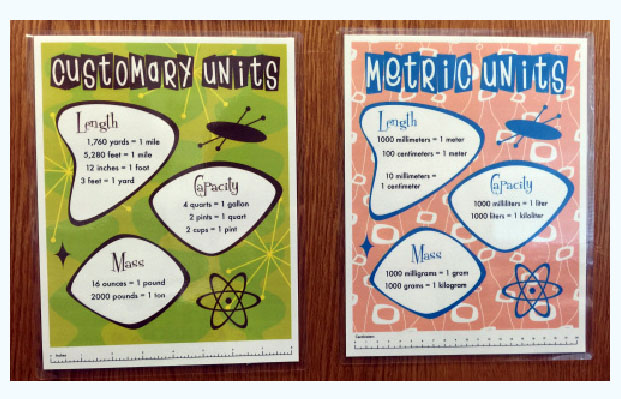 CUSTOMARY UNITS
Length
1,760 yards = 1 mile
5,280 feet = 1 mile
12 inches = 1 foot
3 feet = 1 yard
Capacity
4 quarts = 1 gallon
2 pints = 1 quart
2 cups = 1 pint
Mass
16 ounces = 1 pound
2000 pounds = 1 ton
Inches
METRIC UNITS
Length
1000 millimeters = 1 meter
100 centimeters = 1 meter
10 millimeters =
1 centimeter
Capacity
1000 milliliters = 1 liter
1000 liters = 1 kiloliter
Mass
1000 milligrams = 1 gram
1000 grams = 1 kilogram
Centimeters